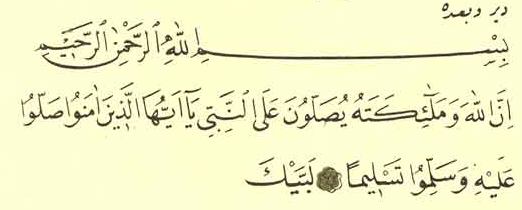 دیر و بعده
بِسْمِ اللّٰهِ الرَّحْمٰنِ الرَّحٖيمِ
اِنَّ اللّٰهَ وَمَلٰٓئِكَتَهُ يُصَلُّونَ عَلَى النَّبِىِّ يَٓا اَيُّهَا الَّذٖينَ اٰمَنُوا صَلُّوا
عَلَيْهِ وَسَلِّمُوا تَسْلٖيمًا لَبَّيْكَ